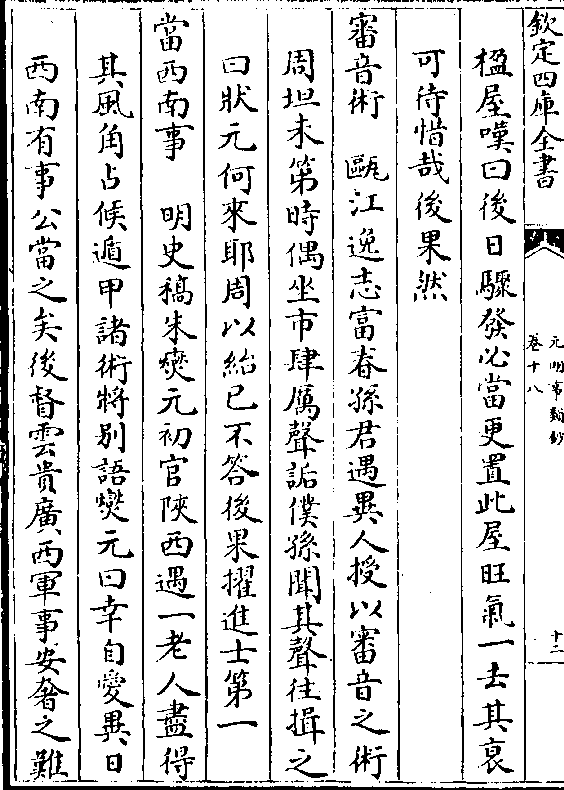 欽定四庫全書
元明事類鈔
卷十八
十二
楹屋嘆曰後日驟發必當更置此屋旺氣一去其衰
可待惜哉後果然
審音術　甌江逸志富春孫君遇異人授以審音之術
周坦未第時偶坐市肆厲聲詬僕孫聞其聲往揖之
曰狀元何來耶周以紿己不答後果擢進士第一
當西南事　明史稿朱燮元初官陜西遇一老人盡得
其風角占候遁甲諸術將别語燮元曰幸自愛異日
西南有事公當之矣後督雲貴廣西軍事安奢之難